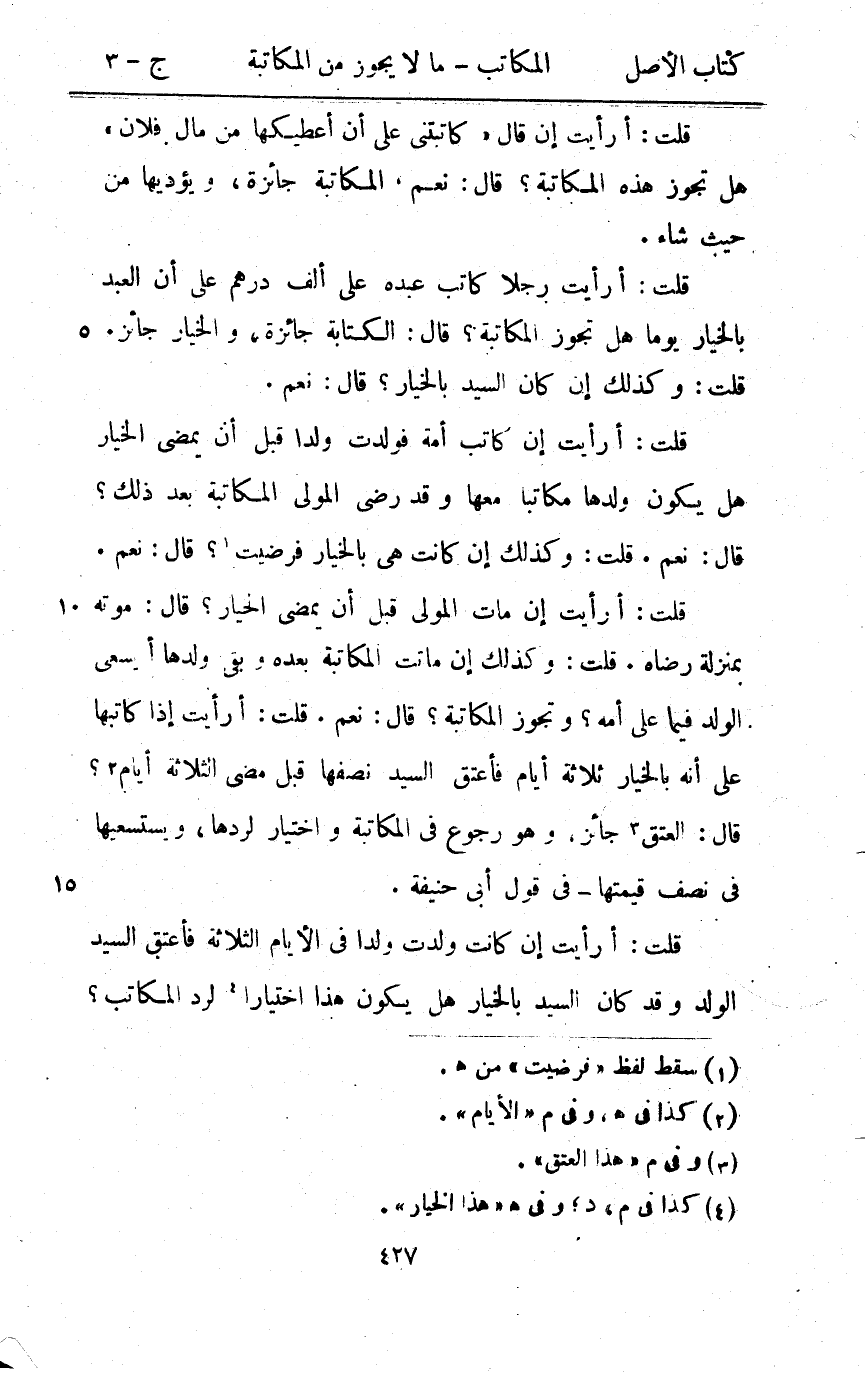 كتاب الأصل المكاتب - ما لا يجوز من المكاتبة ج - ٣
قلت : أ رأيت إن قال « كاتبتنى على أن أعطيكها من مال فلان »
هل تجوز هذه المكاتبة ؟ قال : نعم ، المكاتبة جائزة ، و يؤديها من
حيث شاء .
قلت : أ رأيت رجلا كاتب عبده على ألف درهم على أن العبد
بالخيار يوما هل تجوز المكاتبة ؟ قال : الكتابة جائزة ، و الخيار جائز . ٥
قلت : و كذلك إن كان السيد بالخيار ؟ قال : نعم .
قلت : أ رأيت إن كاتب أمة فولدت ولدا قبل أن يمضى الخيار
هل يكون ولدها مكاتبا معها و قد رضى المولى المكاتبة بعد ذلك ؟
قال : نعم . قلت : و كذلك إن كانت هى بالخيار فرضيت ١ ؟ قال : نعم .
قلت : أ رأيت إن مات المولى قبل أن يمضى الخيار ؟ قال : موته ١٠
بمنزلة رضاه . قلت : و كذلك إن ماتت المكاتبة بعده و بقى ولدها أ يسعى
الولد فيما على أمه ؟ و تجوز المكاتبة ؟ قال : نعم . قلت : أ رأيت إذا كاتبها
على أنه بالخيار ثلاثة أيام فأعتق السيد نصفها قبل مضى الثلاثة أيام ٢ ؟
قال : العتق ٣ جائز ، و هو رجوع فى المكاتبة و اختيار لردها ، و يستسعيها
فى نصف قيمتها - فى قول أبى حنيفة . ١٥
قلت : أ رأيت إن كانت ولدت ولدا فى الأيام الثلاثة فأعتق السيد
الولد و قد كان السيد بالخيار هل يكون هذا اختيارا ٤ لرد المكاتب ؟
(١) سقط لفظ « فرضيت » من ه .
(٢) كذا فى ه ، و فى م « الأيام » .
(٣) و فى م « هذا العتق » .
(٤) كذا فى م ، د ؛ و فى ه « هذا الخيار » .
٤٢٧